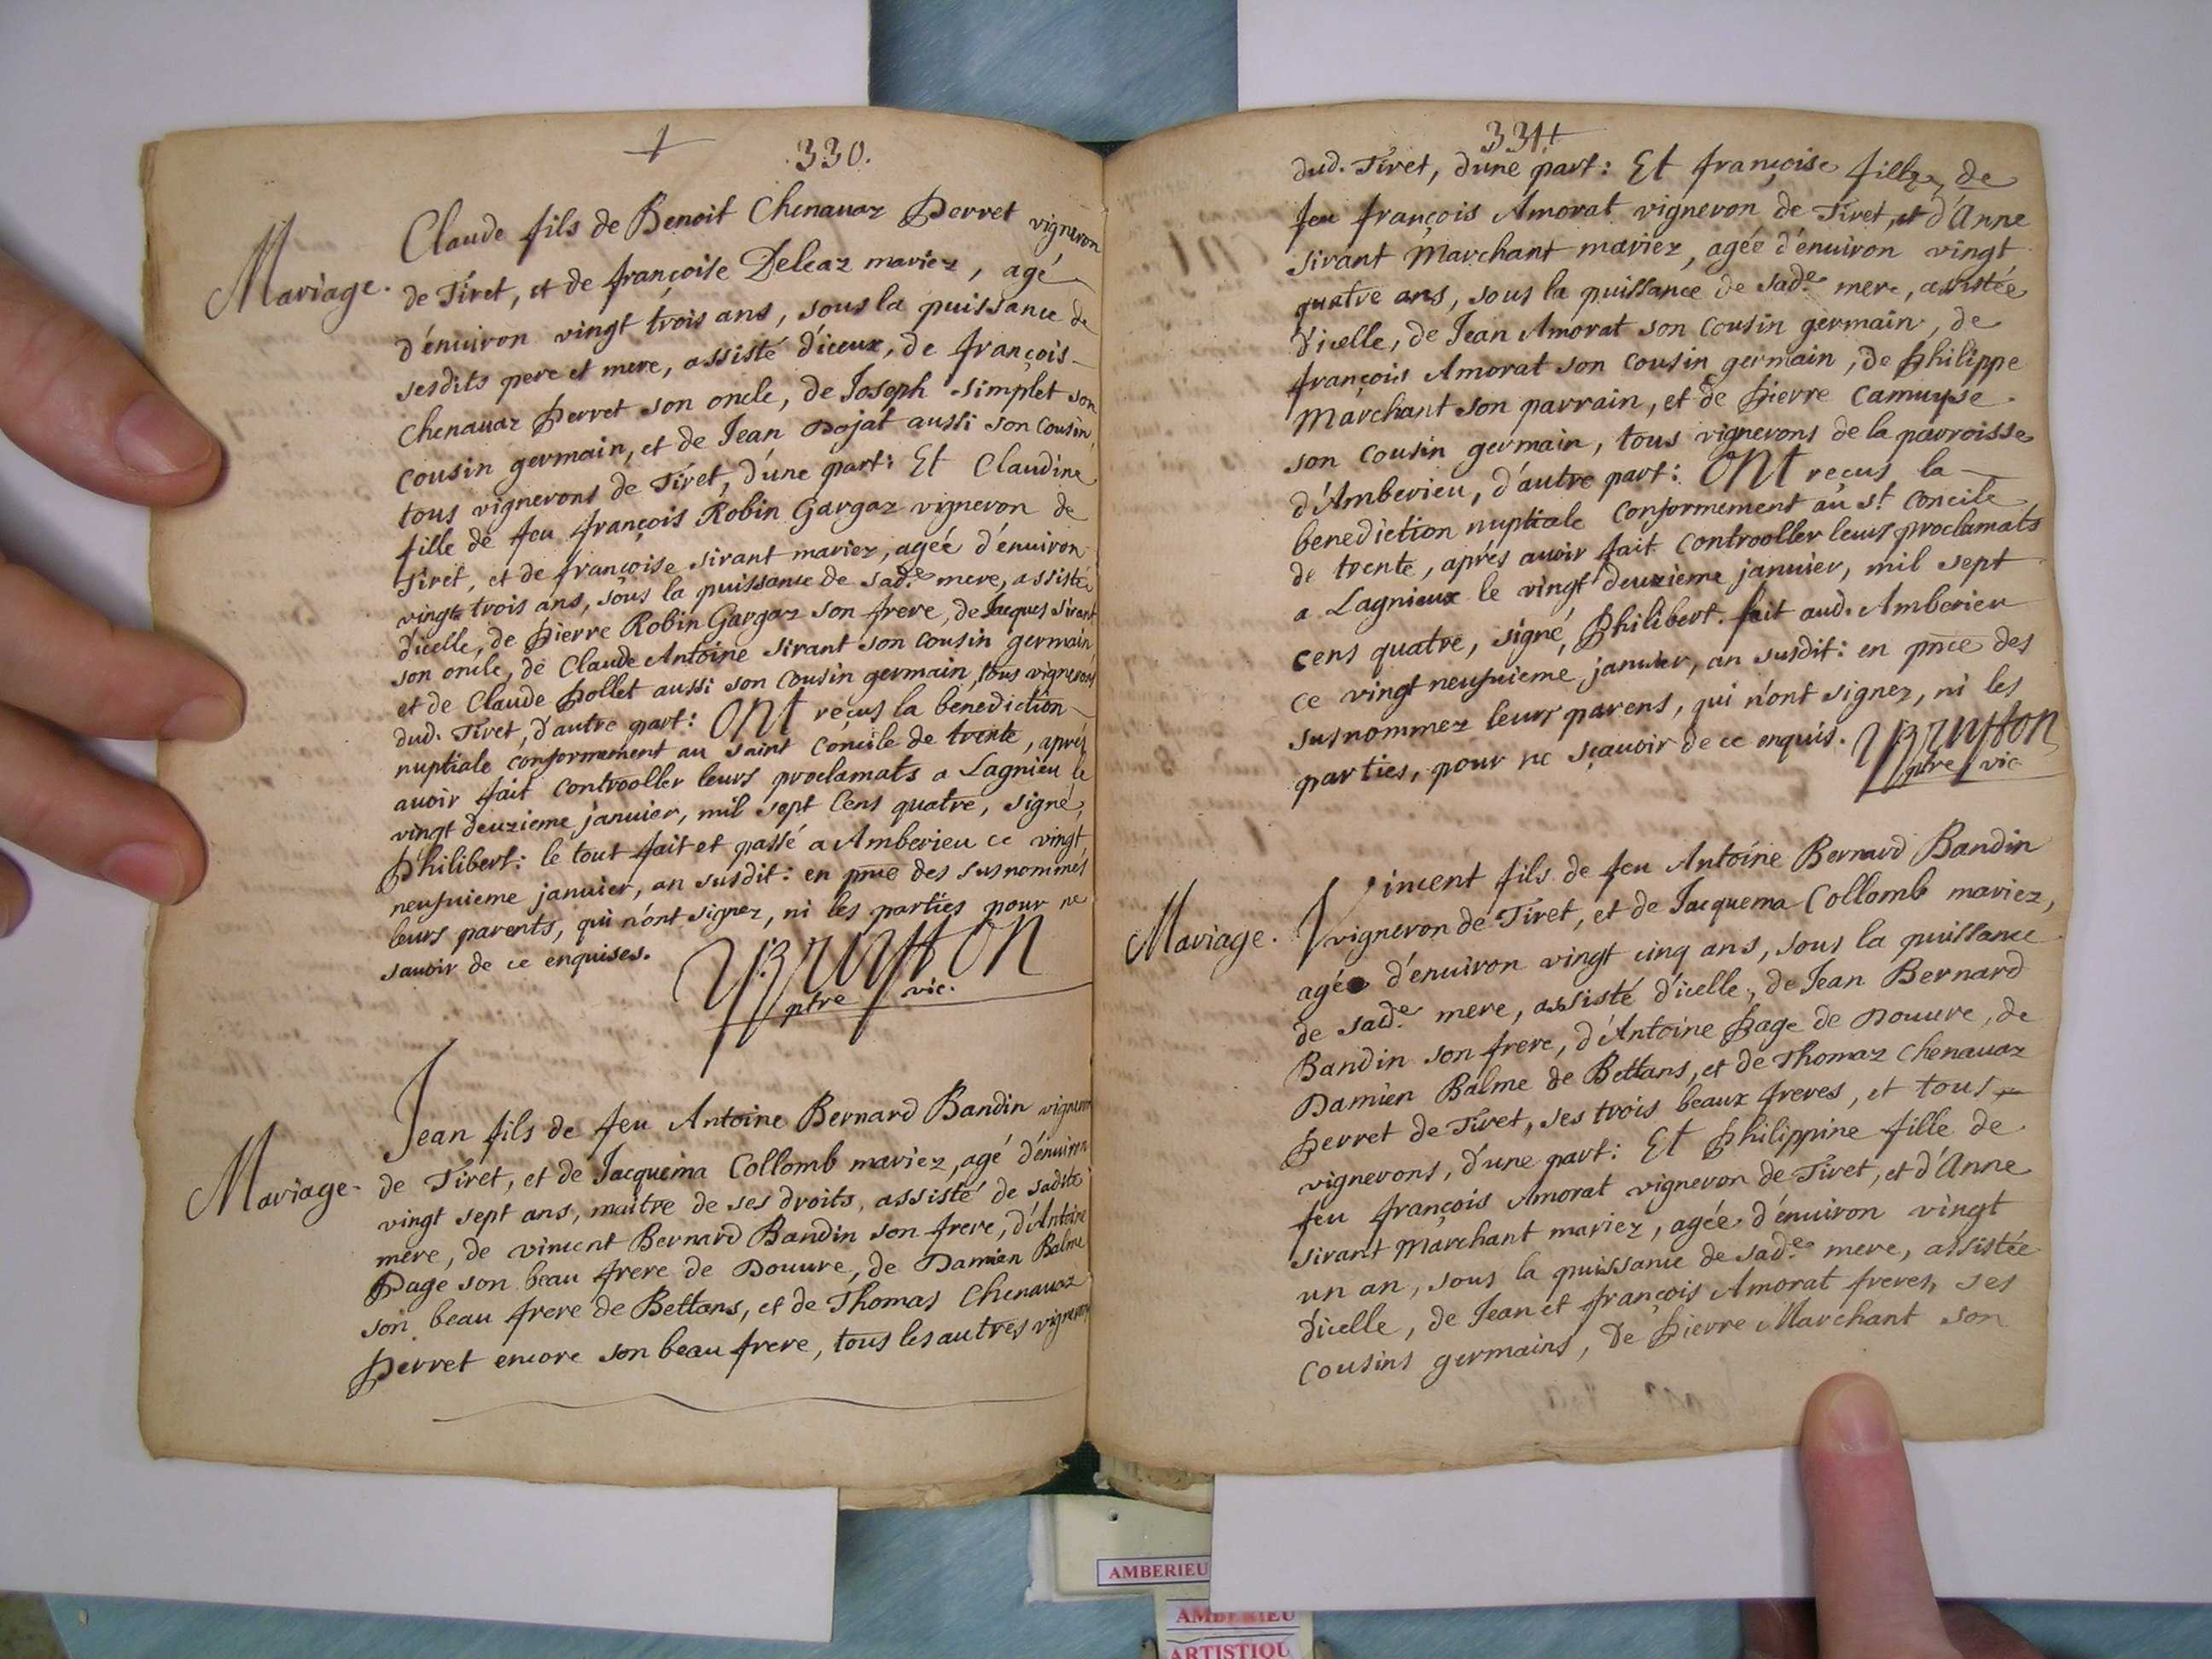 330.
Mariage.
Claude fils de Benoit Chenavaz Perret vigneron
de Tiret, et de françoise Deleaz mariez, agé
d'enuiron vingt trois ans, sous la puissance de
sesdits pere et mere, assisté d'iceux, de françois
Chenavaz Perret son oncle, de Joseph Simplet son
cousin germain, et de Jean Dojat aussi son cousin,
tous vignerons de Tiret, d'une part: Et Claudine
fille de feu françois Robin Gargaz vigneron de
Tiret, et de françoise sirant mariez, agée d'enuiron
vingt trois ans, sous la puissance de sad.e mere, assistée
d'icelle, de Pierre Robin Gargaz son frere, de Jacques sirant
son oncle, de Claude Antoine sirant son cousin germain,
et de Claude Pollet aussi son cousin germain, tous vignerons
dud. Tiret, d'autre part: Ont reçus la benediction
nuptiale conformement au saint concile de trente, aprés
auoir fait controoller leurs proclamats a Lagnieu le
vingt deuzieme januier, mil sept Cens quatre, signé,
Philibert: le tout fait et passé a Amberieu ce vingt
neufuieme januier, an susdit: en pnce des susnommés
leurs parents, qui n'ont signez, ni les parties pour ne
sauoir de ce enquises.
ptre vic.
Mariage.
Jean fils de feu Antoine Bernard Bandin vigneron
de Tiret, et de Jacquema Collomb mariez, agé d'enuiron
vingt sept ans, maitre de ses droits, assisté de sadite
mere, de vincent Bernard Bandin son frere, d'Antoine
Page son beau frere de Douure, de Damien Balme
son beau frere de Bettans, et de Thomas Chenavaz
Perret encore son beau frere, tous les autres vignerons
331
dud. Tiret, d'une part: Et françoise fille de
feu françois Amorat vigneron de Tiret, et d'Anne
sirant Marchant mariez, agée d'enuiron vingt
quatre ans, sous la puissance de sad.e mere, assistée
d'icelle, de Jean Amorat son cousin germain, de
françois Amorat son cousin germain, de Philippe
Marchant son parrain, et de Pierre Camuyse
son cousin germain, tous vignerons de la parroisse
d'Amberieu, d'autre part: Ont reçus la
benediction nuptiale conformement au st. concile
de trente, aprés auoir fait controoller leurs proclamats
a Lagnieux le vingt deuzieme januier, mil sept
cens quatre, signé, Philibert. fait aud. Amberieu
ce vingt neufuieme januier, an susdit: en pnce des
susnommez leurs parens, qui n'ont signez, ni les
parties, pour ne sçauoir de ce enquis.
ptre vic
Mariage.
Vincent fils de feu Antoine Bernard Bandin
vigneron de Tiret, et de Jacquema Collomb mariez,
agé d'enuiron vingt cinq ans, sous la puissance
de sad.e mere, assisté d'icelle, de Jean Bernard
Bandin son frere, d'Antoine Page de Douure, de
Damien Balme de Bettans, et de Thomaz Chenavaz
Perret de Tiret, ses trois beaux freres, et tous
vignerons, d'une part: Et Philippine fille de
feu françois Amorat vigneron de Tiret, et d'Anne
sirant Marchant mariez, agée d'enuiron vingt
un an, sous la puissance de sad.e mere, assistée
d'icelle, de Jean et françois Amorat freres, ses
cousins germains, de Pierre Marchant son
AMBERIEU
AMBERIEU
ARTISTIQU